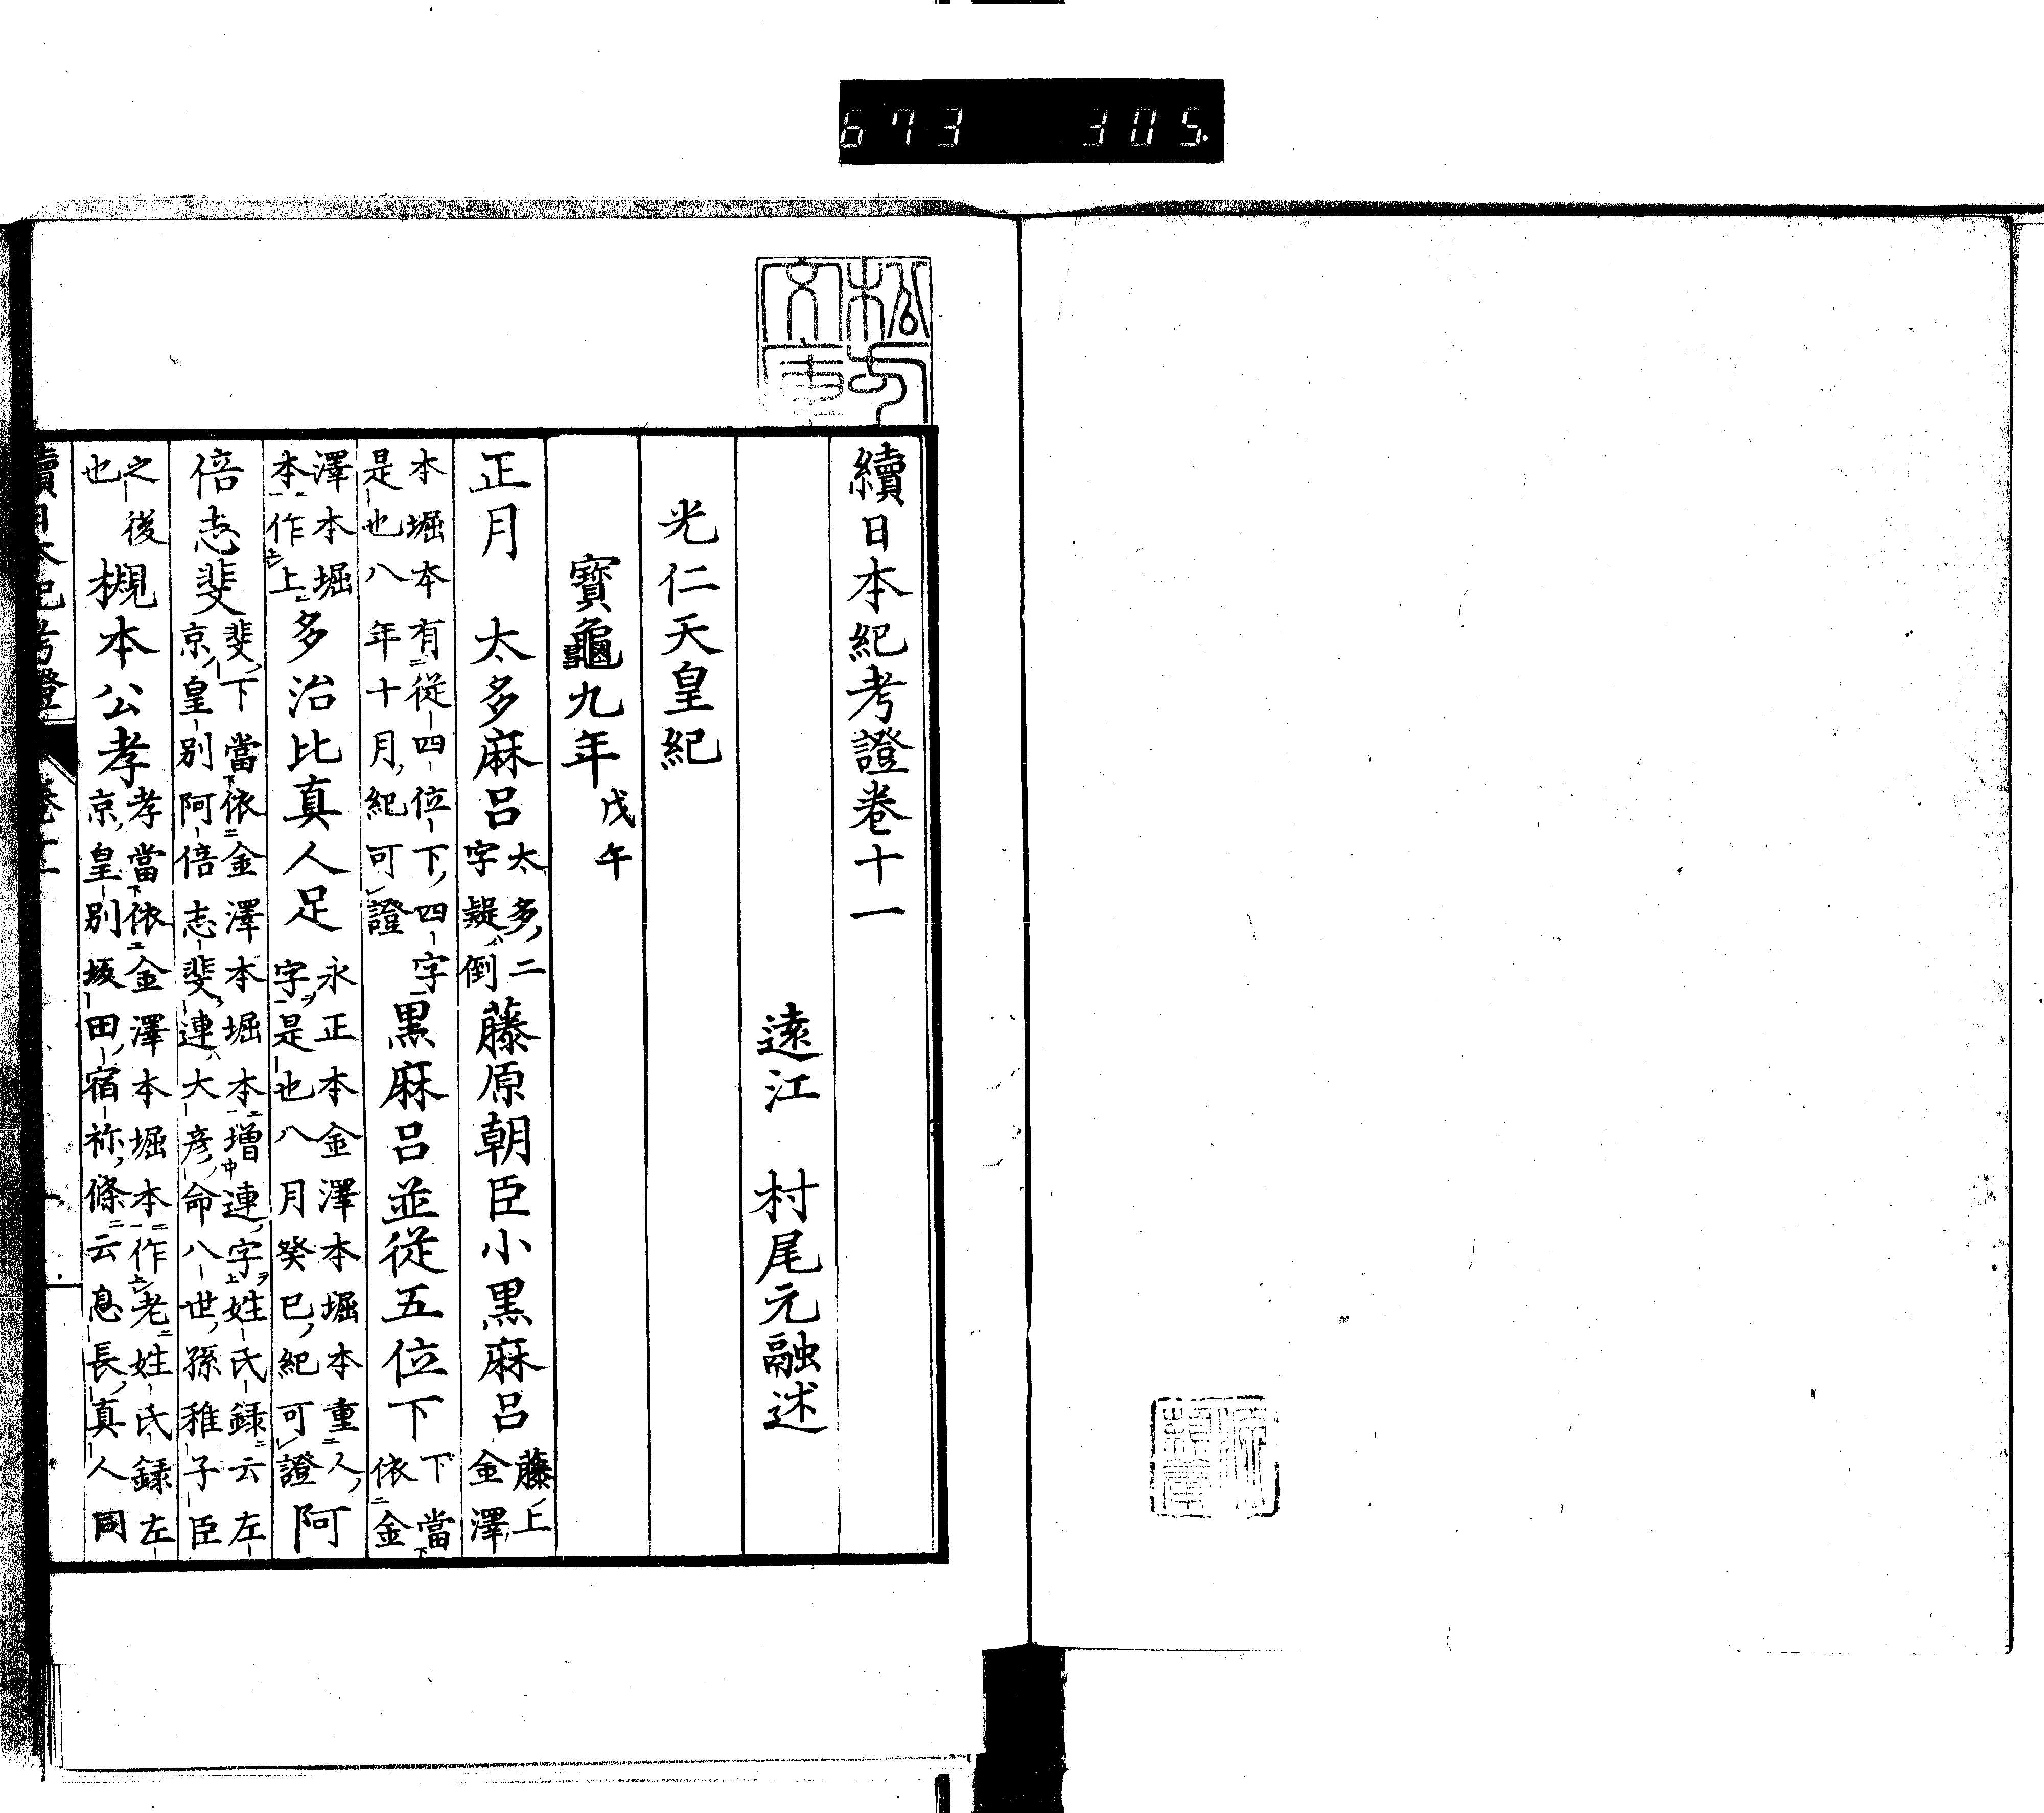 673 305.
松岡文庫
續日本紀考證卷十一
遠江 村尾元融述
光仁天皇紀
寶龜九年戊午
正月 太多麻呂太多、二字疑倒藤原朝臣小黑麻呂藤上金澤
本堀本有從四位下、四字是也八年十月、紀可證黑麻呂並從五位下下當依金
澤本堀本作上多治比真人足永正本金澤本堀本重人、字是也八月癸巳、紀可證阿
倍志斐斐下當依金澤本堀本增連、字姓氏録云左京皇別阿倍志斐連大彦命八世孫稚子臣
之後也槻本公孝孝當依金澤本堀本作老姓氏録左京皇別坂田宿祢條云息長真人同
續日本紀考證 卷十一 一